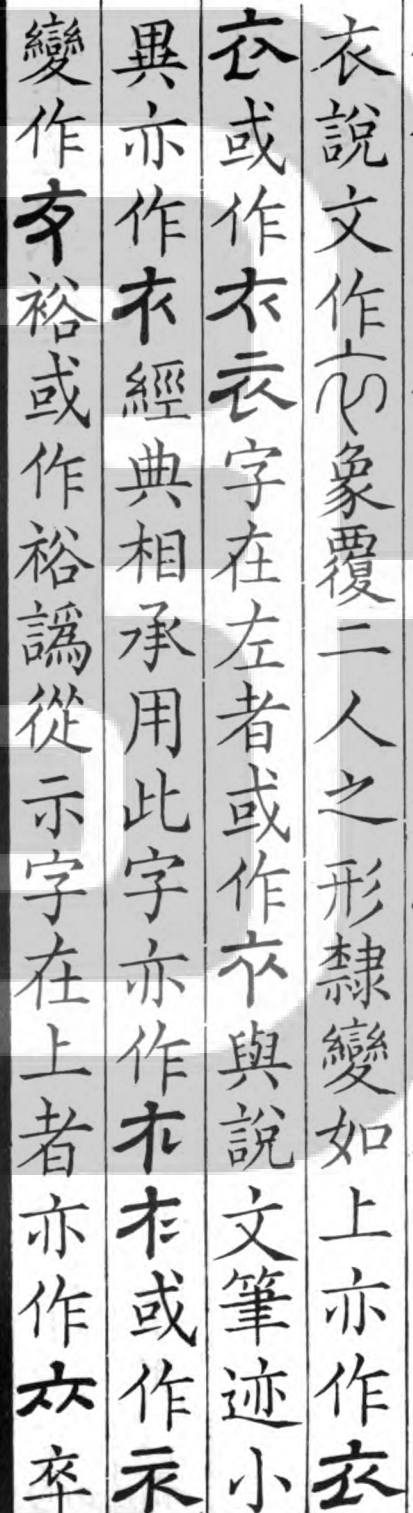 衣說文作𧘇象覆二人之形隸變如上亦作衣
衣或作衣衣字在左者或作衣與說文筆迹小
異亦作衣經典相承用此字亦作或作
變作裕或作裕譌從示字在上者亦作卒